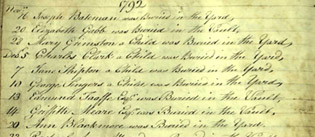 792
16 Joseph Bateman was Buried in the Yard,
20 Elizabeth Gubb was Buried in the Vault,
20 Mary Grimston a Child was Buried in the Yard,
5 Charles Clark a Child was Buried in the Yard,
7 Jane Shipton a Child was Buried in the Yard,
10 George Singer a Child was Buried in the Yard,
13 Edmund Taaffe Esqr. was Buried in the Vault,
Griffith Meare Esqr. was Buried in the Vault,
20 Ann Blackmore was Buried in the Yard,